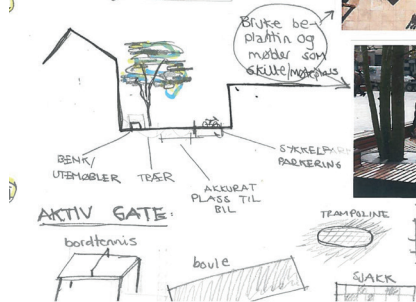 Bruke be-
plantin og
møbler som
skille/møteplass
BENK/
UTEMØBLER
TRÆR
AKKURAT
PLASS TIL
BIL
SYKKELPARK
PARKERING
AKTIV GATE:
bordtennis
boule
TRAMPOLINE
SJAKK